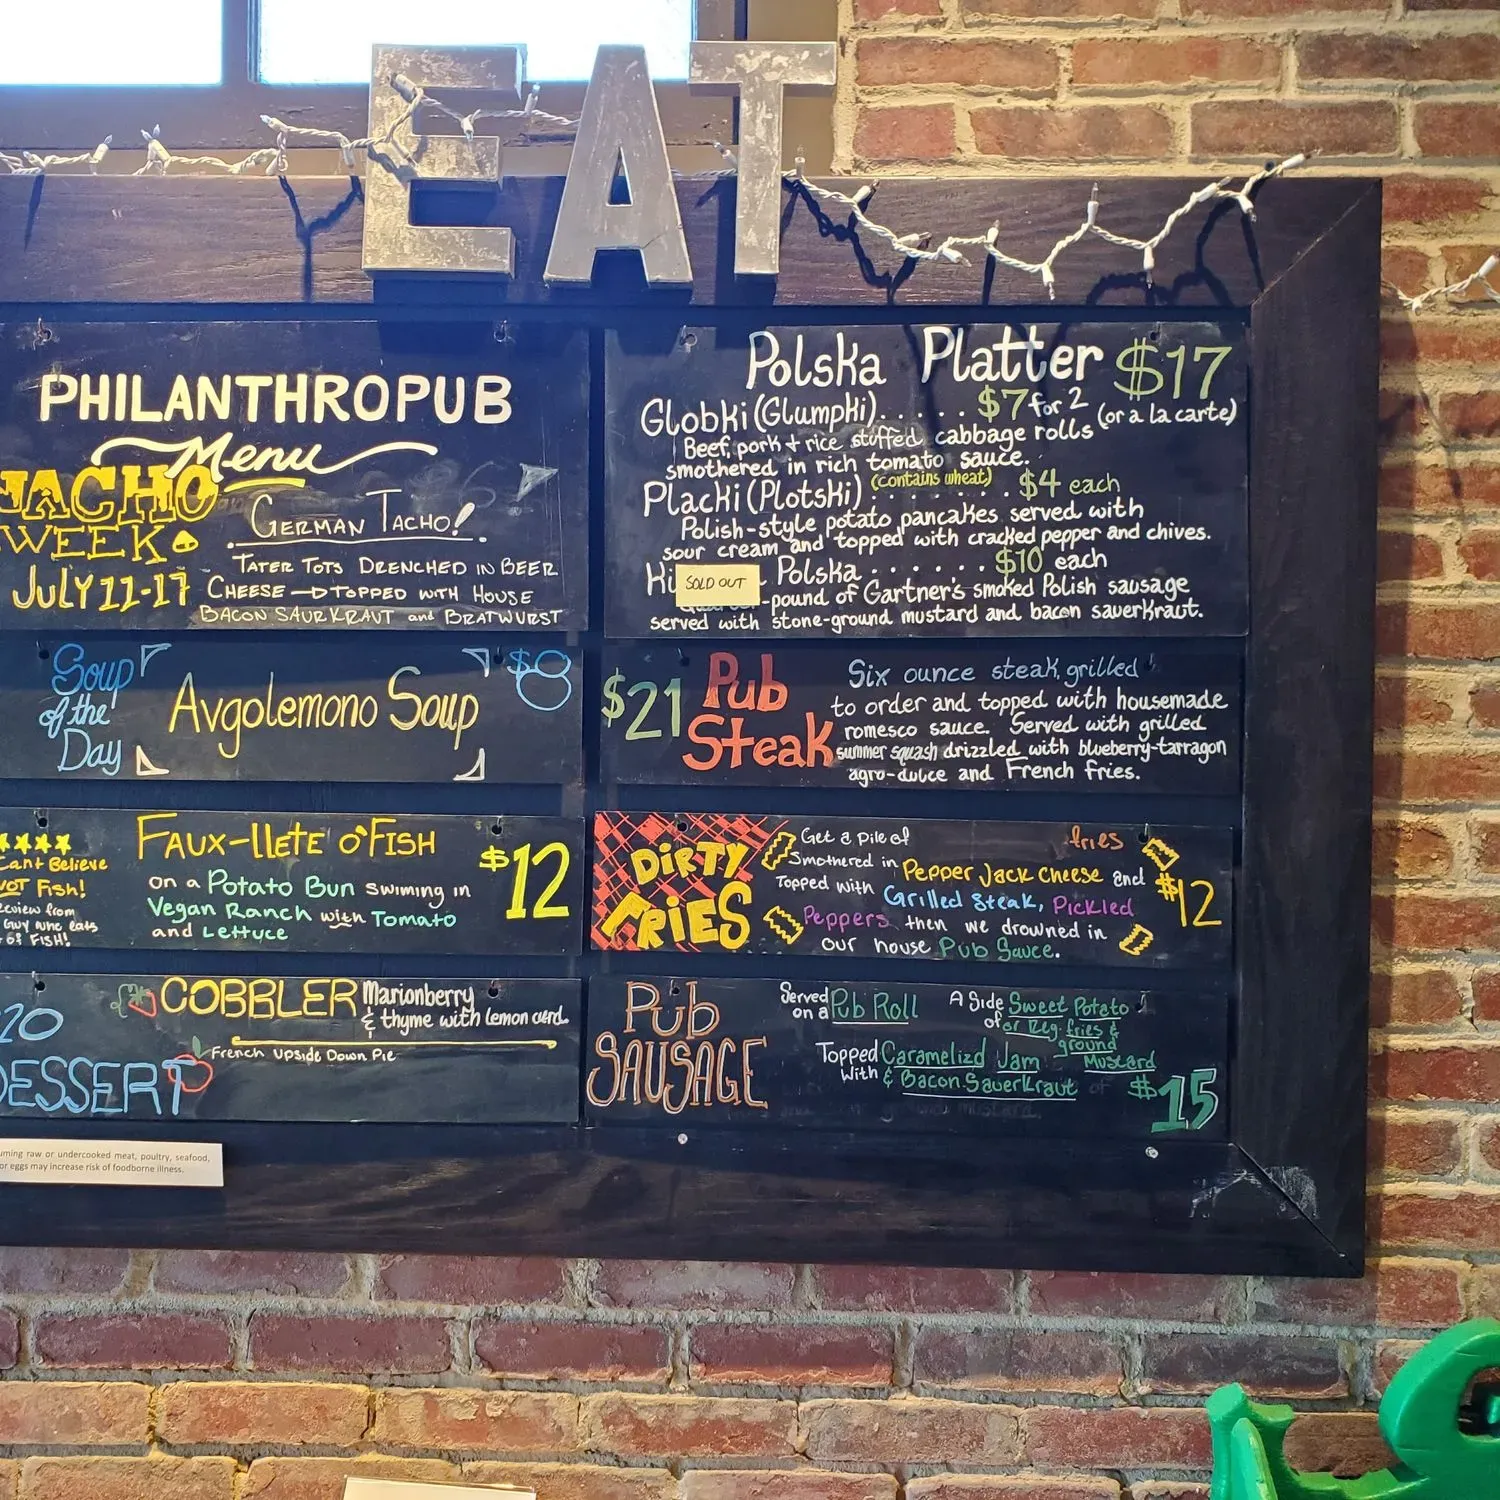 EAT
PHILANTHROPUB
Menu
NACHO
WEEK
JULY 11-17
GERMAN TACHO!
TATER TOTS DRENCHED IN BEER
CHEESE → TOPPED WITH HOUSE
BACON SAURKRAUT and BRATWURST
Soup
of the
Day
Avgolemono Soup
$8
Can't Believe
NOT Fish!
Review from
Guy who eats
FISH!
FAUX-llETE O'FISH
on a Potato Bun swiming in
Vegan Ranch with Tomato
and Lettuce
$12
DESSERT
COBBLER Marionberry
& thyme with lemon curd.
French Upside Down Pie
uming raw or undercooked meat, poultry, seafood,
or eggs may increase risk of foodborne illness.
Polska Platter $17
Globki (Glumpki)..... $7 for 2 (or a la carte)
Beef, pork + rice stuffed cabbage rolls
smothered in rich tomato sauce.
Placki (Plotski) (contains wheat) ....... $4 each
Polish-style potato pancakes served with
sour cream and topped with cracked pepper and chives.
Ki SOLD OUT Polska ...... $10 each
-pound of Gartner's smoked Polish sausage
served with stone-ground mustard and bacon sauerkraut.
$21 Pub Steak
Six ounce steak, grilled
to order and topped with housemade
romesco sauce. Served with grilled
summer squash drizzled with blueberry-tarragon
agro-dulce and French fries.
DIRTY
FRIES
Get a pile of fries
Smothered in Pepper Jack cheese and
Topped with Grilled Steak, Pickled
Peppers then we drowned in
our house Pub Sauce.
$12
Pub
SAUSAGE
Served on a Pub Roll
A Side of Sweet Potato
or Reg. fries &
ground
Mustard
Topped With Caramelizd Jam
& Bacon Sauerkraut
$15